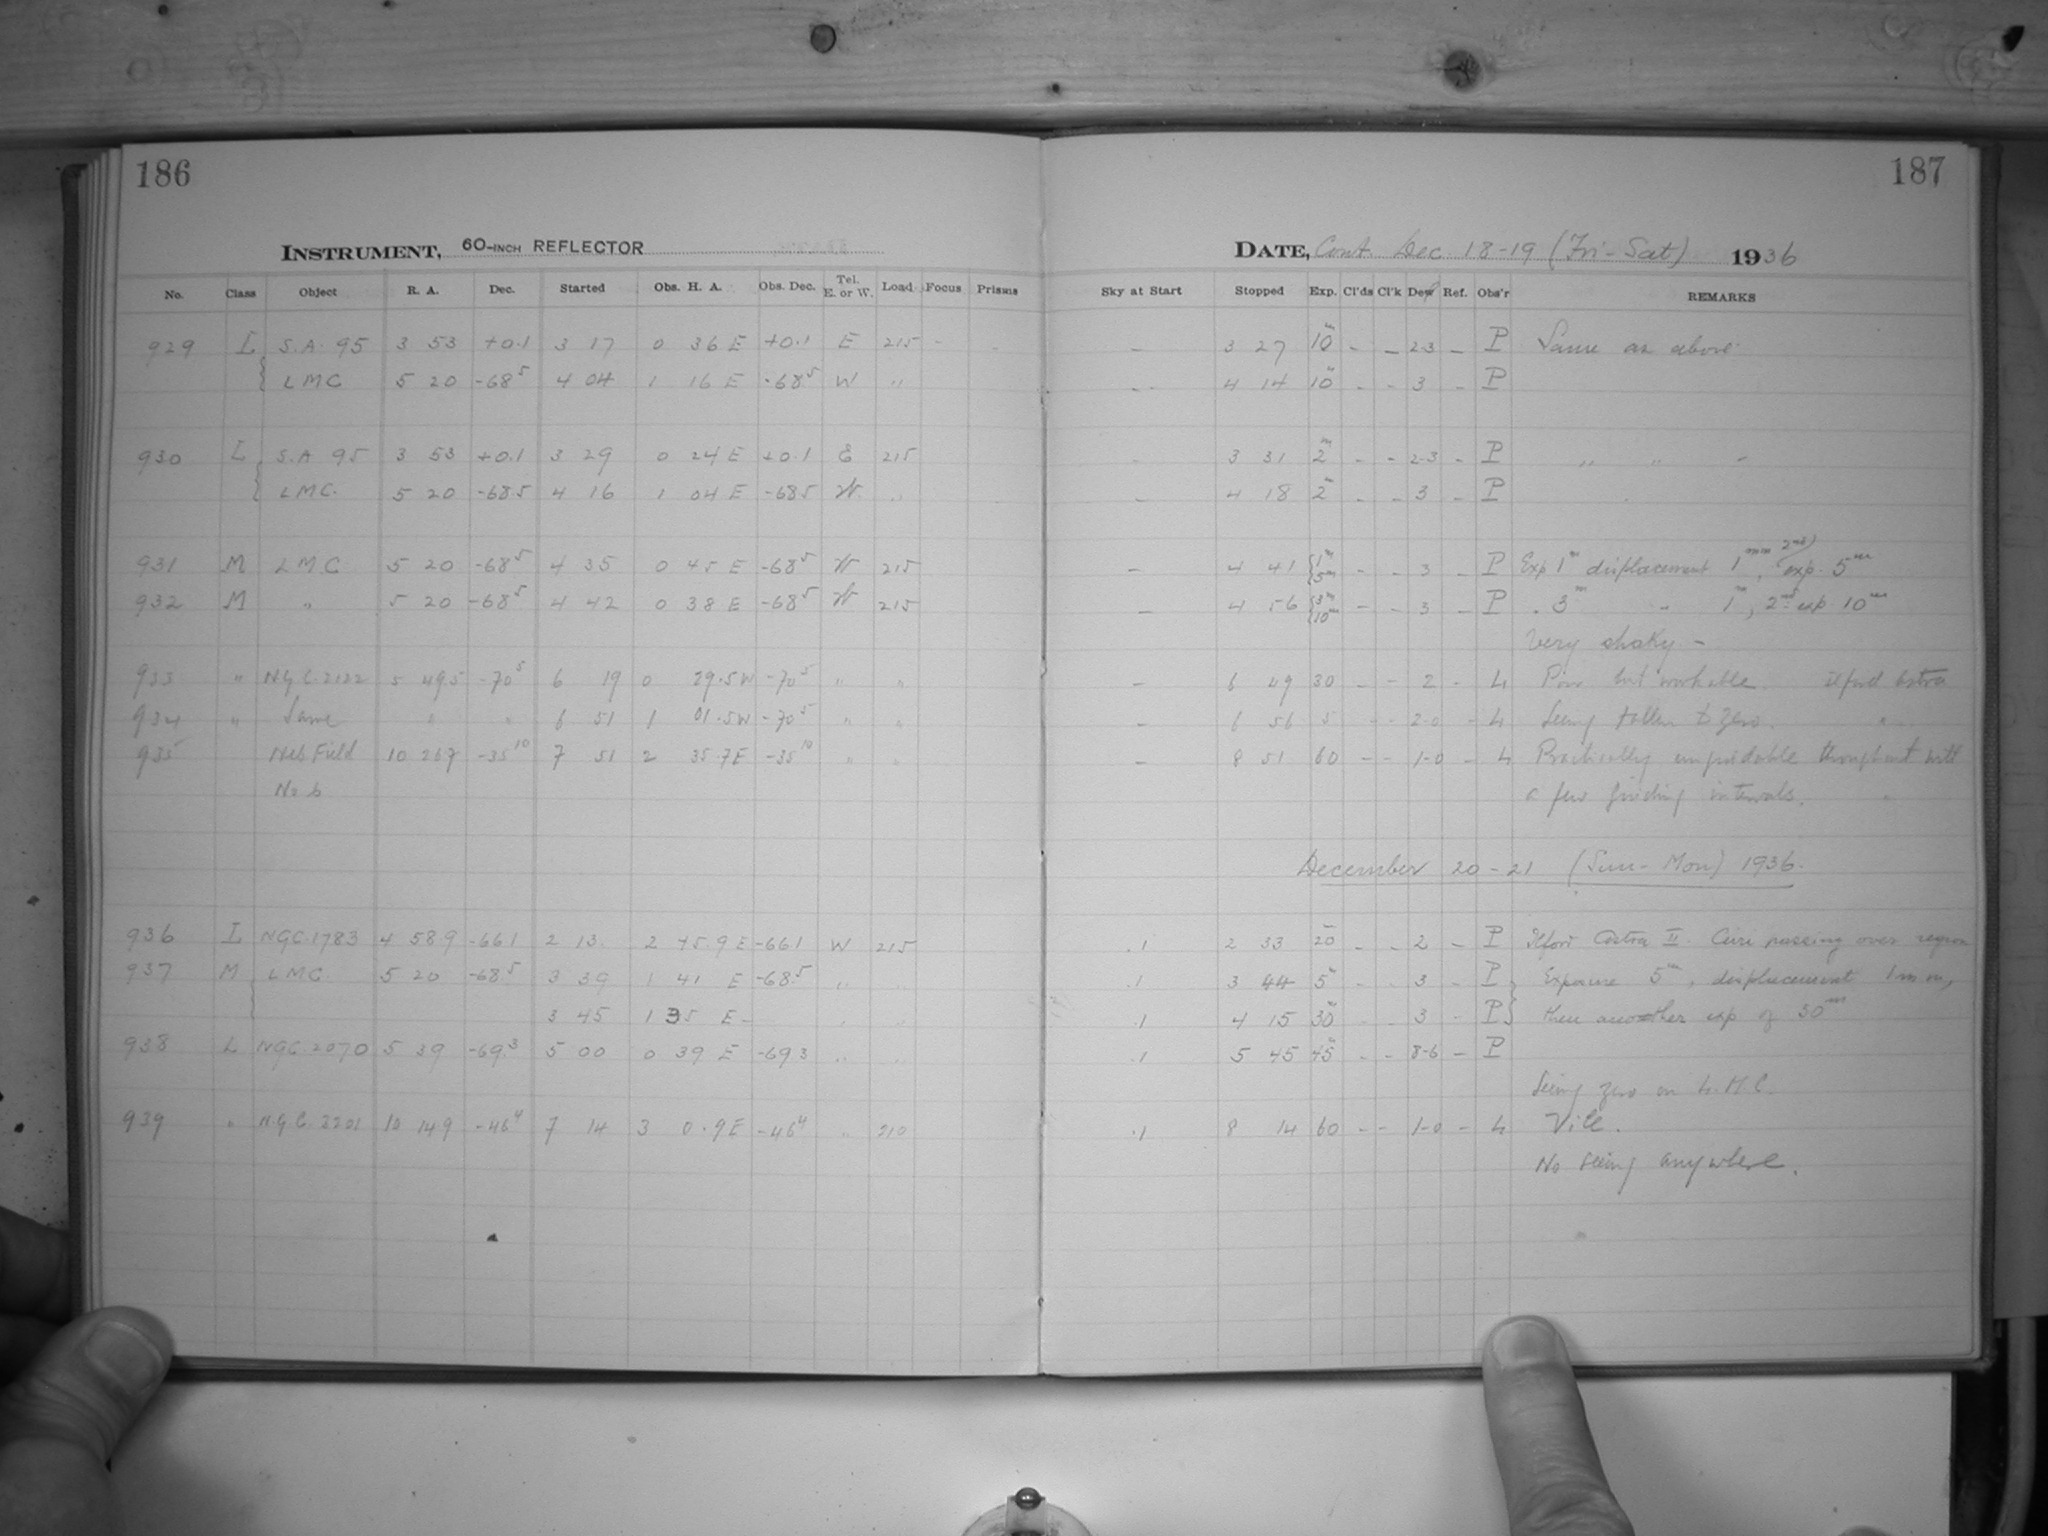 186
187
INSTRUMENT, 60-INCH REFLECTOR
DATE, Cont. Dec 18-19 (Fri-Sat) 1936
No. Class Object R. A. Dec. Started Obs. H. A. Obs. Dec. Tel. E. or W. Load Focus Prisms Sky at Start Stopped Exp. Cl'ds Cl'k Dew Ref. Obs'r REMARKS
929 L S.A. 95 3 53 +0.1 3 17 0 36 E +0.1 E 215 - - - 3 27 10m - - 2-3 - P Same as above
LMC 5 20 -68 5 4 04 1 16 E -68 5 W " - 4 14 10m - - 3 - P
930 L S.A. 95 3 53 +0.1 3 29 0 24 E +0.1 E 215 3 31 2m - - 2-3 - P " " "
LMC. 5 20 -68 5 4 16 1 04 E -68 5 W. " - 4 18 2m - - 3 - P
931 M LMC 5 20 -68 5 4 35 0 45 E -68 5 W 215 - 4 41 {1m 5m - - 3 - P Exp 1m displacement 1mm, 2nd exp. 5m
932 M " 5 20 -68 5 4 42 0 38 E -68 5 W 215 - 4 56 {3m 10m - - 3 - P . 3m " 1m, 2nd exp 10m
Very shaky -
933 " NGC.2122 5 49.5 -70 5 6 19 0 29.5W -70 5 " " - 6 49 30 - - 2 - L Poor but workable. Ilford Astra
934 " Same " " 6 51 1 01.5W -70 5 " " - 6 56 5 - - 2-0 - L Seeing fallen to zero. "
935 Neb Field 10 267 -35 10 7 51 2 35.7E -35 10 " " - 8 51 60 - - 1-0 - L Practically unguidable throughout with
No 6 a few guiding intervals. "
December 20-21 (Sun-Mon) 1936.
936 L NGC.1783 4 589 -661 2 13. 2 45.9 E -661 W 215 .1 2 33 20 - - 2 - P Ilford Astra II. Cirri passing over region
937 M LMC 5 20 -68 5 3 39 1 41 E -68 5 " " .1 3 44 5m - - 3 - P } Exposure 5m, displacement 1mm,
3 45 1 35 E - " " .1 4 15 30m - - 3 - P } then another exp of 30m
938 L NGC.2070 5 39 -69.3 5 00 0 39 E -693 " " .1 5 45 45m - - 8-6 - P
Seeing zero on L.M.C.
939 " NGC. 3201 10 149 -46 4 7 14 3 0.9E -46 4 " 210 .1 8 14 60 - - 1-0 - L Vile.
No seeing anywhere.